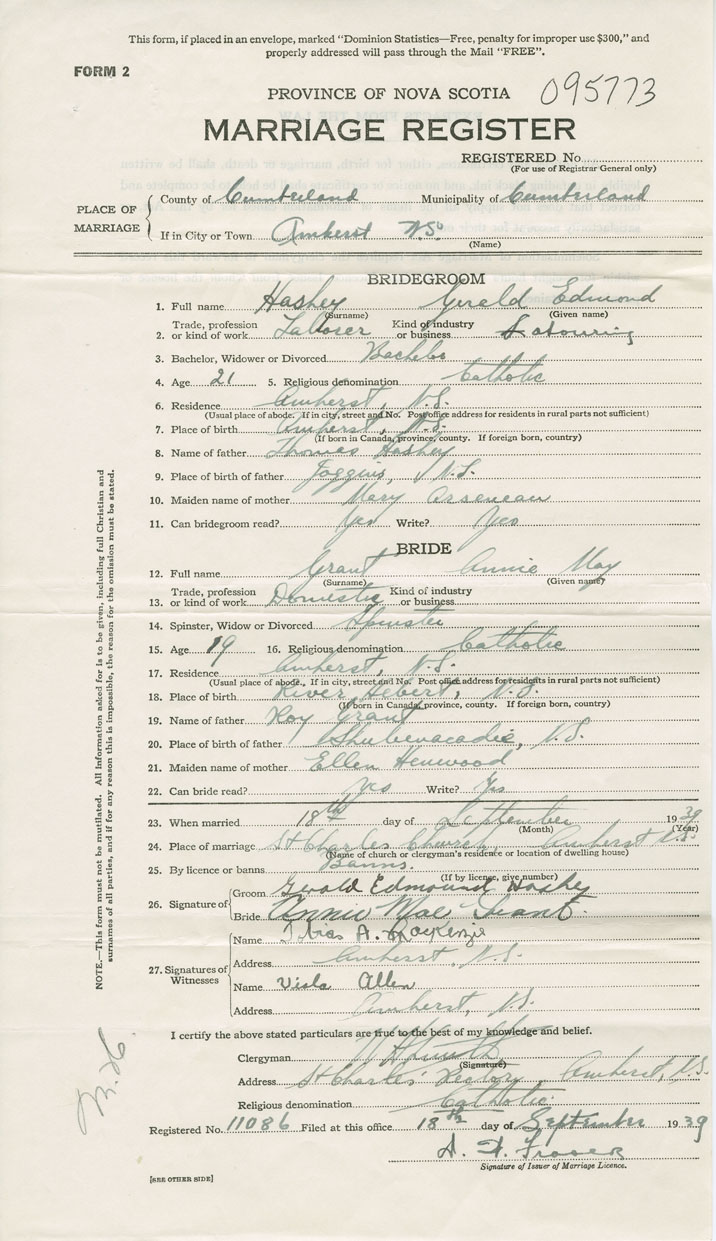 This form, if placed in an envelope, marked "Dominion Statistics—Free, penalty for improper use $300," and
properly addressed will pass through the Mail "FREE".
FORM 2
PROVINCE OF NOVA SCOTIA 095773
MARRIAGE REGISTER
REGISTERED No.
(For use of Registrar General only)
PLACE OF MARRIAGE
County of Cumberland Municipality of Cumberland
If in City or Town Amherst N.S.
(Name)
BRIDEGROOM
1. Full name Hashey Gerald Edmond
(Surname) (Given name)
2. Trade, profession or kind of work Laborer Kind of industry or business Labouring
3. Bachelor, Widower or Divorced Bachelor
4. Age 21 5. Religious denomination Catholic
6. Residence Amherst, N.S.
(Usual place of abode. If in city, street and No. Post office address for residents in rural parts not sufficient)
7. Place of birth Amherst, N.S.
(If born in Canada, province, county. If foreign born, country)
8. Name of father Thomas Hashey
9. Place of birth of father Joggins, N.S.
10. Maiden name of mother Mary Arseneau
11. Can bridegroom read? Yes Write? Yes
BRIDE
12. Full name Grant Annie May
(Surname) (Given name)
13. Trade, profession or kind of work Domestic Kind of industry or business
14. Spinster, Widow or Divorced Spinster
15. Age 19 16. Religious denomination Catholic
17. Residence Amherst, N.S.
(Usual place of abode. If in city, street and No. Post office address for residents in rural parts not sufficient)
18. Place of birth River Hebert, N.S.
(If born in Canada, province, county. If foreign born, country)
19. Name of father Roy Grant
20. Place of birth of father Shubenacadie, N.S.
21. Maiden name of mother Ellen Henwood
22. Can bride read? Yes Write? Yes
23. When married 18th day of September 1939
(Month) (Year)
24. Place of marriage St Charles Church, Amherst N.S.
(Name of church or clergyman's residence or location of dwelling house)
25. By licence or banns Banns.
(If by license, give number)
26. Signature of
Groom Gerald Edmound Hashey
Bride Annie Mae Grant.
27. Signatures of Witnesses
Name A. MacKenzie
Address Amherst, N.S.
Name Viola Allen
Address Amherst, N.S.
I certify the above stated particulars are true to the best of my knowledge and belief.
Clergyman
(Signature)
Address St Charles' Rectory, Amherst, N.S.
Religious denomination Catholic
Registered No. 11086 Filed at this office 18th day of September 1939
Signature of Issuer of Marriage Licence.
[SEE OTHER SIDE]
NOTE.—This form must not be mutilated. All information asked for is to be given, including full Christian and
surnames of all parties, and if for any reason this is impossible, the reason for the omission must be stated.